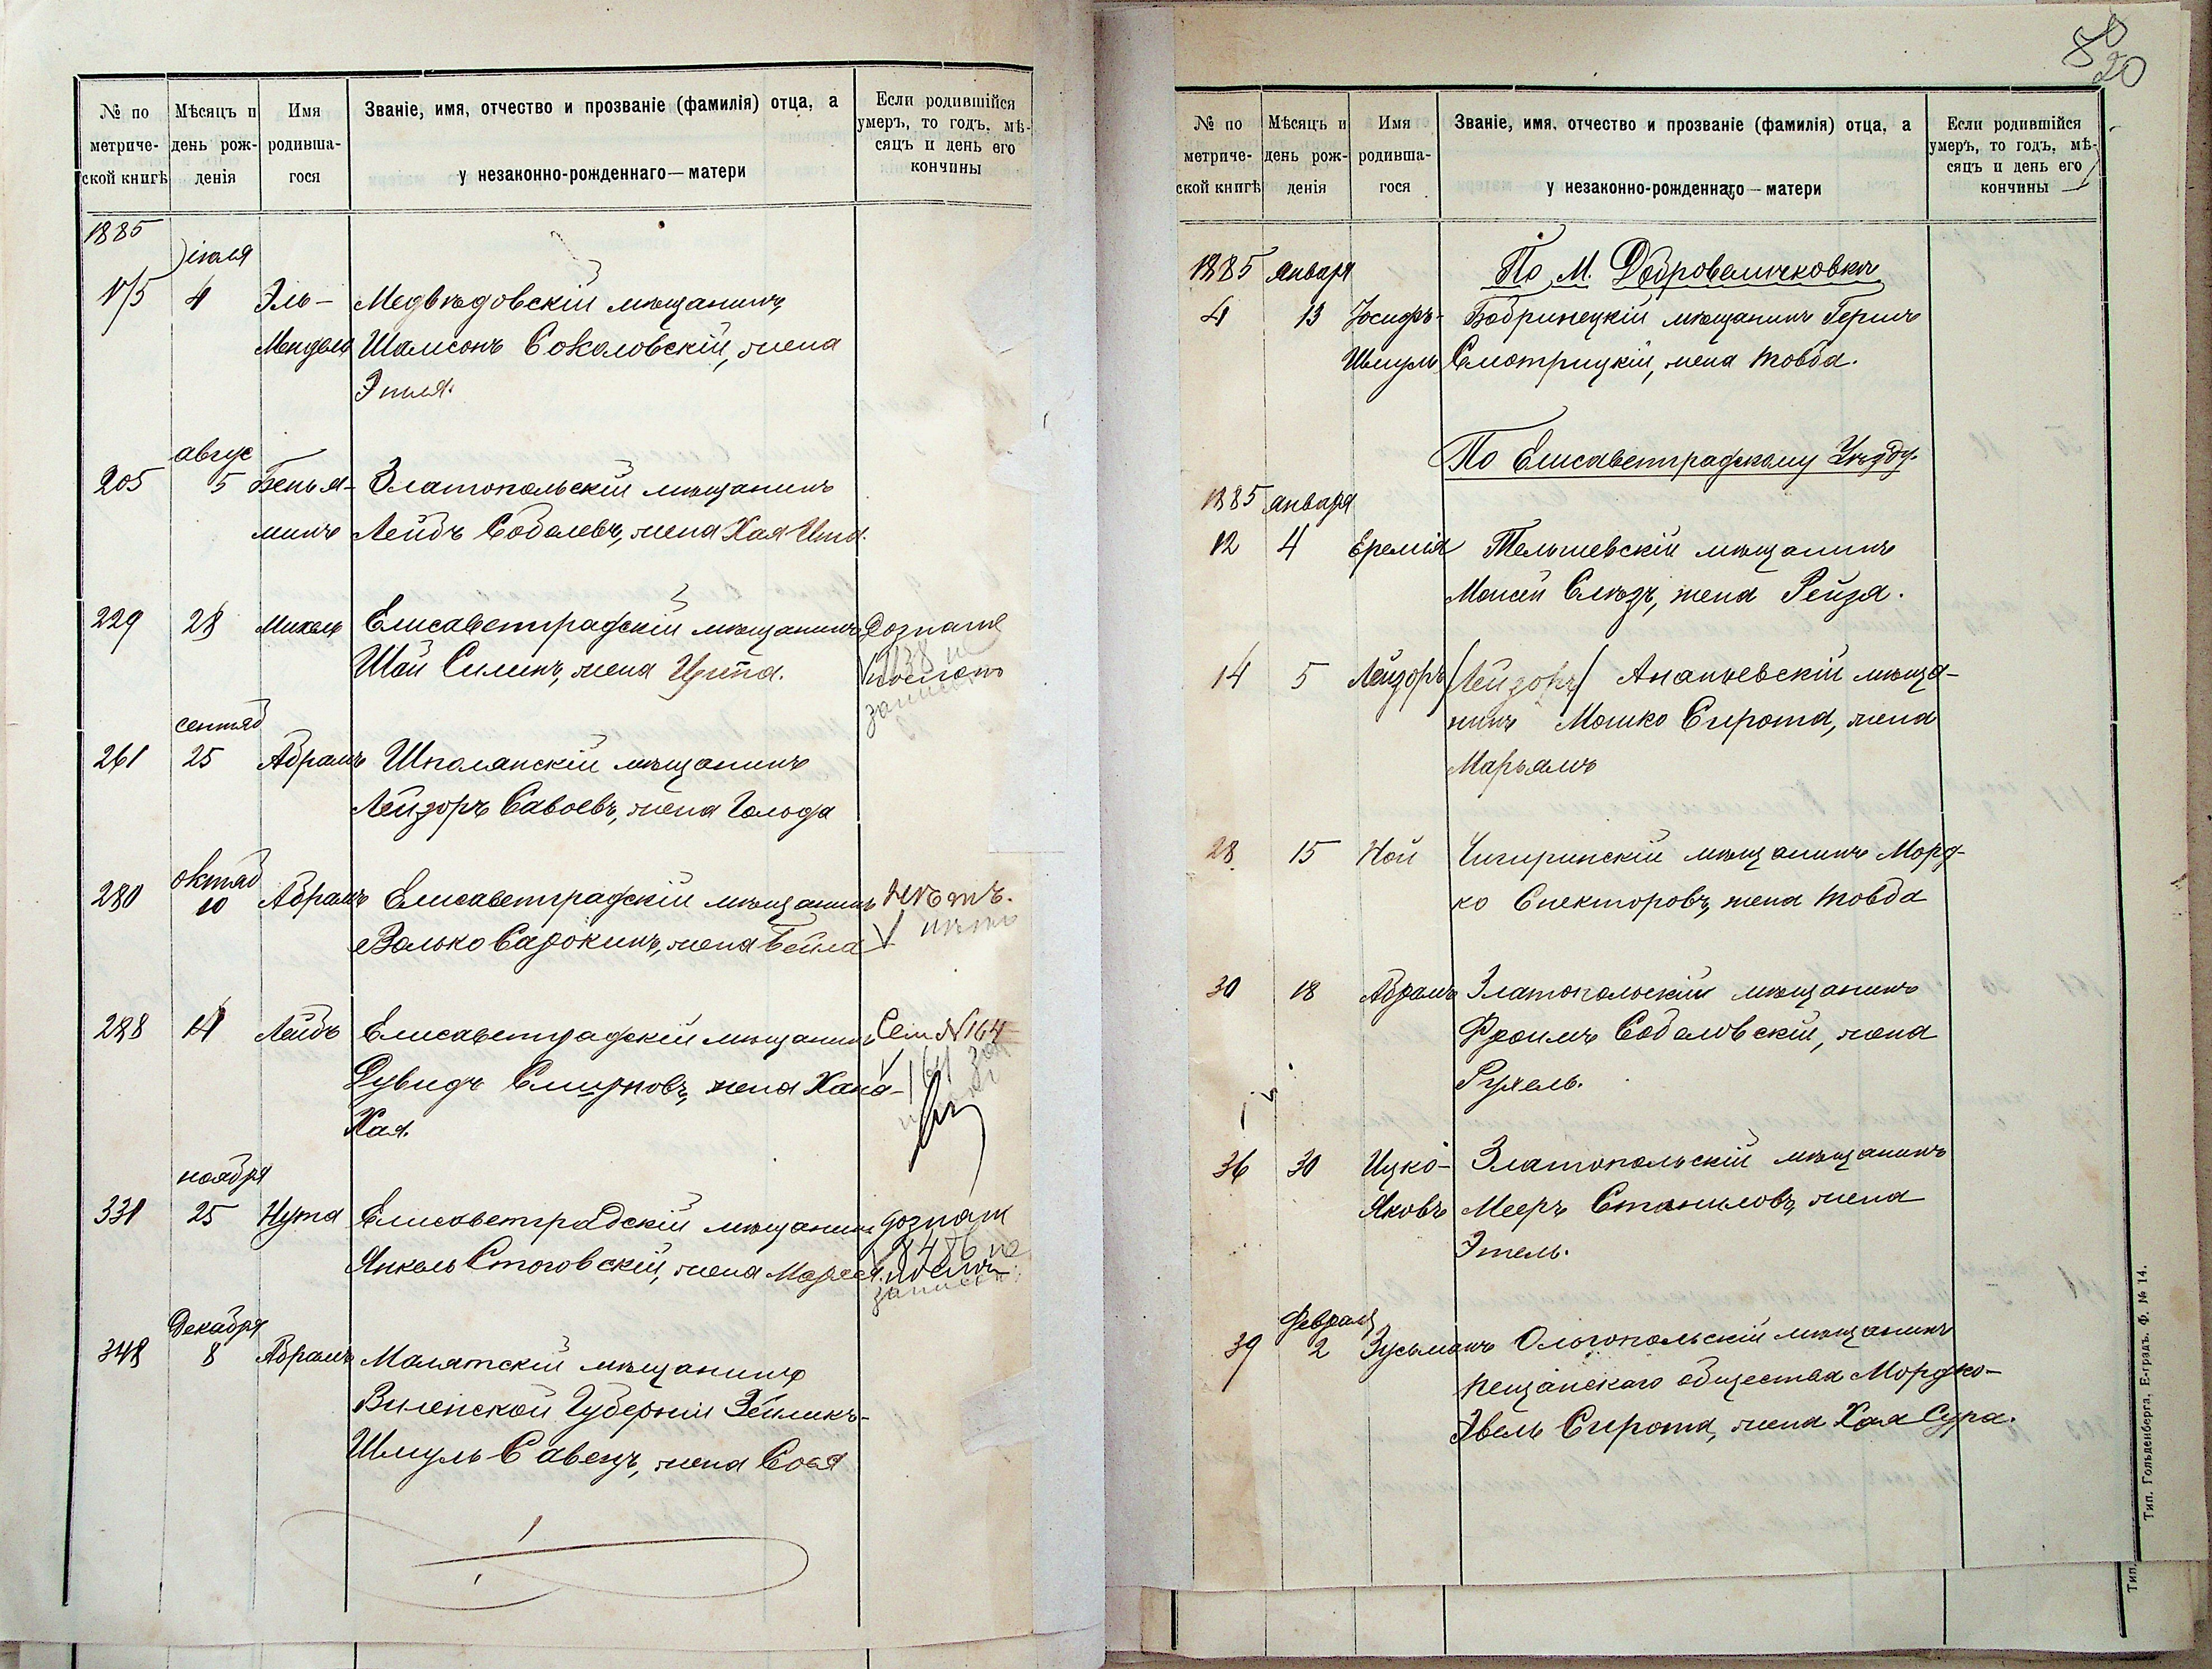 № по метриче-ской книгѣ
Мѣсяцъ и день рож-денія
Имя родивша-гося
Званіе, имя, отчество и прозваніе (фамилія) отца, а у незаконно-рожденнаго—матери
Если родившійся умеръ, то годъ, мѣ-сяцъ и день его кончины
1885
іюля
175 4 Эль- Медвѣдовскій мѣщанинъ
Мендель Шамсонъ Соколовскій, жена
Этля.
авгус
205 5 Бенья- Златопольскій мѣщанинъ
минъ Лейбъ Соболевъ, жена Хая Ита.
229 28 Михель Елисаветградскій мѣщанинъ Дознаніе
Шай Силинъ, жена Ципа.
сентяб
261 25 Абрамъ Шполянскій мѣщанинъ
Лейзоръ Савоевъ, жена Гольда
октяб
280 10 Абрамъ Елисаветградскій мѣщанинъ Нѣтъ.
Волько Сарокинъ, жена Бейла нѣтъ
288 14 Лейбъ Елисаветградскій мѣщанинъ Сем №164
Дувидъ Смирновъ, жена Хана-
Хая.
ноября
331 25 Нута Елисаветградскій мѣщанинъ дознан
Янкель Стоговскій, жена
Декабря
348 8 Абрамъ Малятскій мѣщанинъ
Виленской Губерніи Зеликъ-
Шмуль Савецъ, жена Сося
20
№ по метриче-ской книгѣ
Мѣсяцъ и день рож-денія
Имя родивша-гося
Званіе, имя, отчество и прозваніе (фамилія) отца, а у незаконно-рожденнаго—матери
Если родившійся умеръ, то годъ, мѣ-сяцъ и день его кончины
1885 января По М. Добровеличковкѣ
4 13 Іосифъ- Бобринецкій мѣщанинъ Гершъ
Шмуль Смотрицкій, жена Товба.
По Елисаветградскому Уѣзду.
1885 января
12 4 Еремія Тельшевскій мѣщанинъ
Моисей Слѣзъ, жена Рейзя.
14 5 Лейзоръ /Лейзоръ/ Ананьевскій мѣща-
нинъ Мошко Сирота, жена
Марьямъ
28 15 Ной Чигиринскій мѣщанинъ Морд-
ко Спекторовъ, жена Товба
30 18 Абрамъ Златопольскій мѣщанинъ
Фроимъ Соболовскій, жена
Рухель.
36 30 Ицко- Златопольскій мѣщанинъ
Яковъ Мееръ Станиловъ, жена
Этель.
февраля
39 2 Зусьманъ Ольгопольскій мѣщанинъ
Пещанскаго общества Мордко-
Эвель Сирота, жена Хая Сура.
Тип. Гольденберга, Е-градъ. Ф. № 14.
Тип.